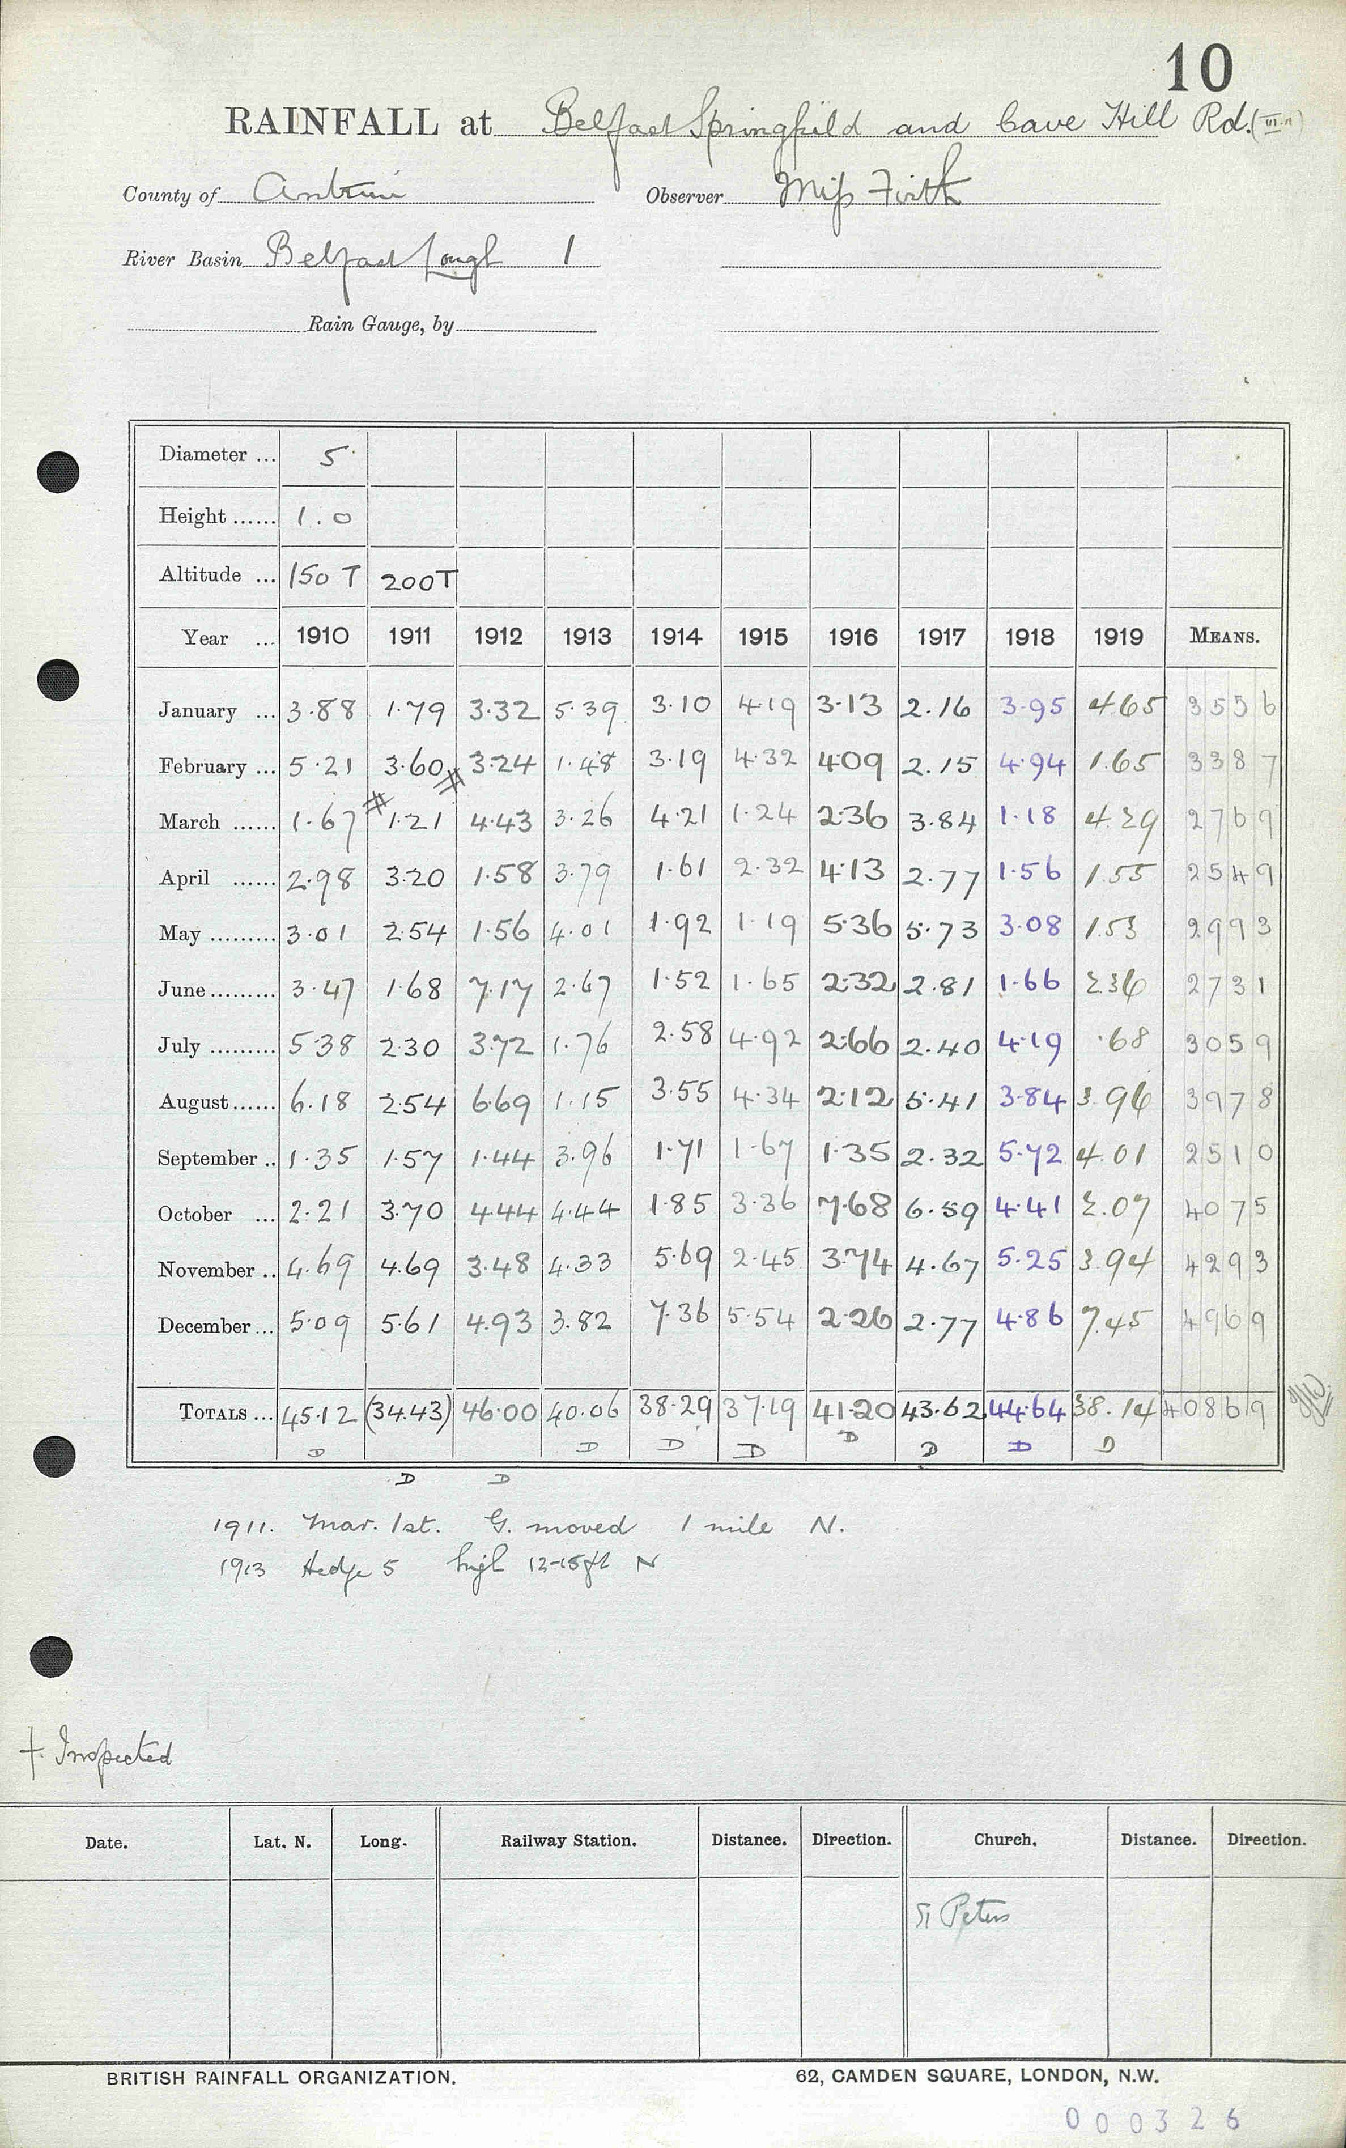 10
RAINFALL at Belfast Springfield and Cave Hill Rd.
County of Antrim Observer Miss Firth
River Basin Belfast Lough 1
Rain Gauge, by
Diameter ... 5
Height ...... 1.0
Altitude ... 150 T 200T
Year ... 1910 1911 1912 1913 1914 1915 1916 1917 1918 1919 MEANS.
January ... 3.88 1.79 3.32 5.39 3.10 4.19 3.13 2.16 3.95 4.65 3556
February ... 5.21 3.60 3.24 1.48 3.19 4.32 4.09 2.15 4.94 1.65 3387
March ...... 1.67 1.21 4.43 3.26 4.21 1.24 2.36 3.84 1.18 4.29 2769
April ...... 2.98 3.20 1.58 3.79 1.61 2.32 4.13 2.77 1.56 1.55 2549
May ......... 3.01 2.54 1.56 4.01 1.92 1.19 5.36 5.73 3.08 1.53 2993
June ......... 3.47 1.68 7.17 2.67 1.52 1.65 2.32 2.81 1.66 2.36 2731
July ......... 5.38 2.30 3.72 1.76 2.58 4.92 2.66 2.40 4.19 .68 3059
August ...... 6.18 2.54 6.69 1.15 3.55 4.34 2.12 5.41 3.84 3.96 3978
September .. 1.35 1.57 1.44 3.96 1.71 1.67 1.35 2.32 5.72 4.01 2510
October ... 2.21 3.70 4.44 4.44 1.85 3.36 7.68 6.59 4.41 2.07 4075
November .. 4.69 4.69 3.48 4.33 5.69 2.45 3.74 4.67 5.25 3.94 4293
December ... 5.09 5.61 4.93 3.82 7.36 5.54 2.26 2.77 4.86 7.45 4969
TOTALS ... 45.12 (34.43) 46.00 40.06 38.29 37.19 41.20 43.62 44.64 38.14 40869
D D D D D D D D
D D
1911. Mar. 1st. G. moved 1 mile N.
1913 Hedge 5 high 12-15ft N
† Inspected
Date. Lat. N. Long. Railway Station. Distance. Direction. Church. Distance. Direction.
St Peters
BRITISH RAINFALL ORGANIZATION. 62, CAMDEN SQUARE, LONDON, N.W.
000326